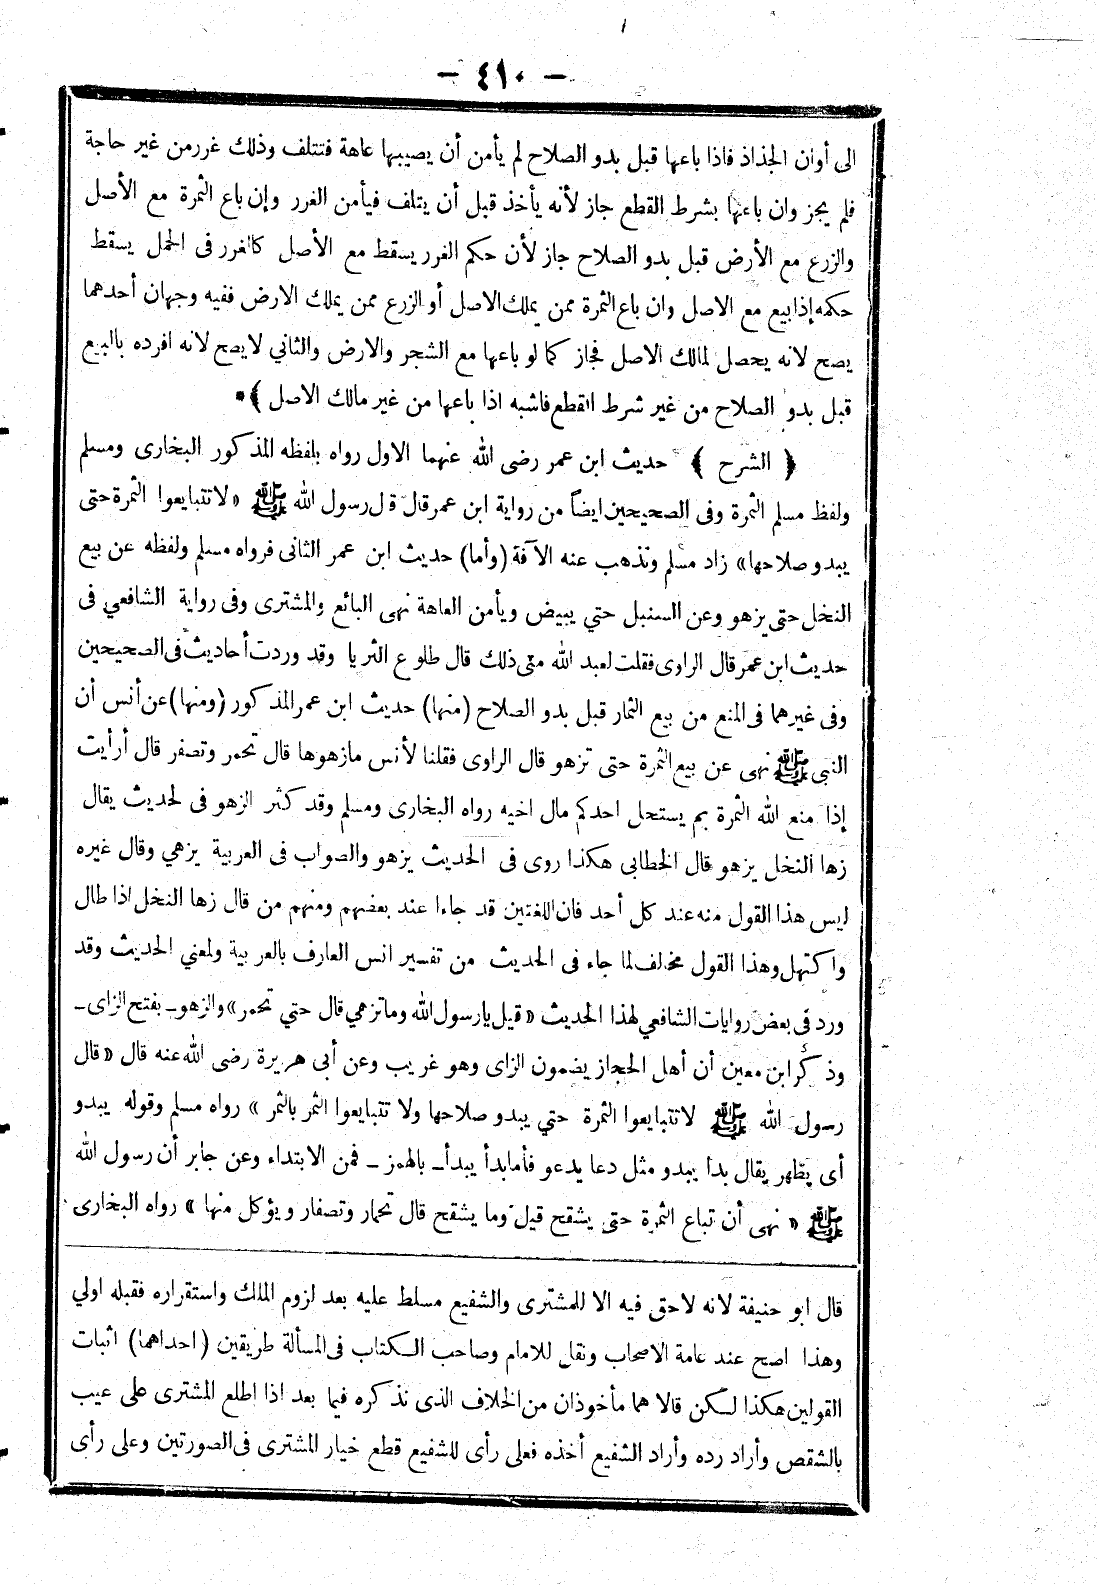 - ٤١٠ -
الى أوان الجذاذ فاذا باعها قبل بدو الصلاح لم يأمن أن يصيبها عاهة فتتلف وذلك غررمن غير حاجة
فلم يجز وان باعها بشرط القطع جاز لأنه يأخذ قبل أن يتلف فيأمن الغرر وإن باع الثمرة مع الأصل
والزرع مع الأرض قبل بدو الصلاح جاز لأن حكم الغرر يسقط مع الأصل كالغرر فى الحمل يسقط
حكمه إذا بيع مع الاصل وان باع الثمرة ممن يملك الاصل أو الزرع ممن يملك الارض ففيه وجهان أحدهما
يصح لانه يحصل لمالك الاصل فجاز كما لو باعها مع الشجر والارض والثاني لا يصح لانه افرده بالبيع
قبل بدو الصلاح من غير شرط القطع فاشبه اذا باعها من غير مالك الاصل ﴾*
﴿ الشرح ﴾ حديث ابن عمر رضى الله عنهما الاول رواه بلفظه المذكور البخارى ومسلم
ولفظ مسلم الثمرة وفى الصحيحين ايضاً من رواية ابن عمر قال قال رسول الله ﷺ «لا تتبايعوا الثمرة حتى
يبدو صلاحها» زاد مسلم وتذهب عنه الآفة (وأما) حديث ابن عمر الثانى فرواه مسلم ولفظه عن بيع
النخل حتى يزهو وعن السنبل حتي يبيض ويأمن العاهة نهى البائع والمشترى وفى رواية الشافعي فى
حديث ابن عمر قال الراوى فقلت لعبد الله متى ذلك قال طلوع الثريا وقد وردت أحاديث فى الصحيحين
وفى غيرهما فى المنع من بيع الثمار قبل بدو الصلاح (منها) حديث ابن عمر المذكور (ومنها) عن أنس أن
النبى ﷺ نهى عن بيع الثمرة حتى تزهو قال الراوى فقلنا لأنس مازهوها قال تحمر وتصفر قال أرأيت
إذا منع الله الثمرة بم يستحل احدكم مال اخيه رواه البخارى ومسلم وقد كثر الزهو فى لحديث يقال
زها النخل يزهو قال الخطابى هكذا روى فى الحديث يزهو والصواب فى العربية يزهي وقال غيره
ليس هذا القول منه عند كل أحد فان اللغتين قد جاءا عند بعضهم ومنهم من قال زها النخل اذا طال
واكتهل وهذا القول مخالف لما جاء فى الحديث من تفسير انس العارف بالعربية ولمعني الحديث وقد
ورد فى بعض روايات الشافعي لهذا الحديث «قيل يا رسول الله وما تزهي قال حتي تحمر» والزهو ـ بفتح الزاى ـ
وذكر ابن معين أن أهل الحجاز يضمون الزاى وهو غريب وعن أبى هريرة رضى الله عنه قال «قال
رسول الله ﷺ لا تتبايعوا الثمرة حتي يبدو صلاحها ولا تتبايعوا الثمر بالثمر » رواه مسلم وقوله يبدو
أى يظهر يقال بدا يبدو مثل دعا يدعو فأما بدأ يبدأ ـ بالهمز ـ فمن الابتداء وعن جابر أن رسول الله
ﷺ « نهى أن تباع الثمرة حتى يشقح قيل وما يشقح قال تحمار وتصفار ويؤكل منها » رواه البخارى
قال ابو حنيفة لانه لاحق فيه الا للمشترى والشفيع مسلط عليه بعد لزوم الملك واستقراره فقبله اولي
وهذا اصح عند عامة الاصحاب ونقل للامام وصاحب الكتاب فى المسألة طريقين (احداهما) اثبات
القولين هكذا لكن قالا هما مأخوذان من الخلاف الذى نذكره فيما بعد اذا اطلع المشترى على عيب
بالشقص وأراد رده وأراد الشفيع أخذه فعلى رأى للشفيع قطع خيار المشترى فى الصورتين وعلى رأى